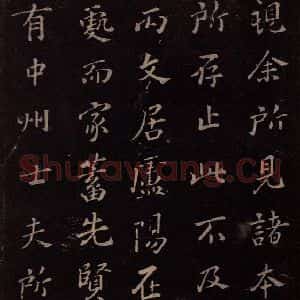 視余所見諸本
所存止此不及
文居廬陽在
而家蓄先賢
有中州士夫所
Shufawang.Cn